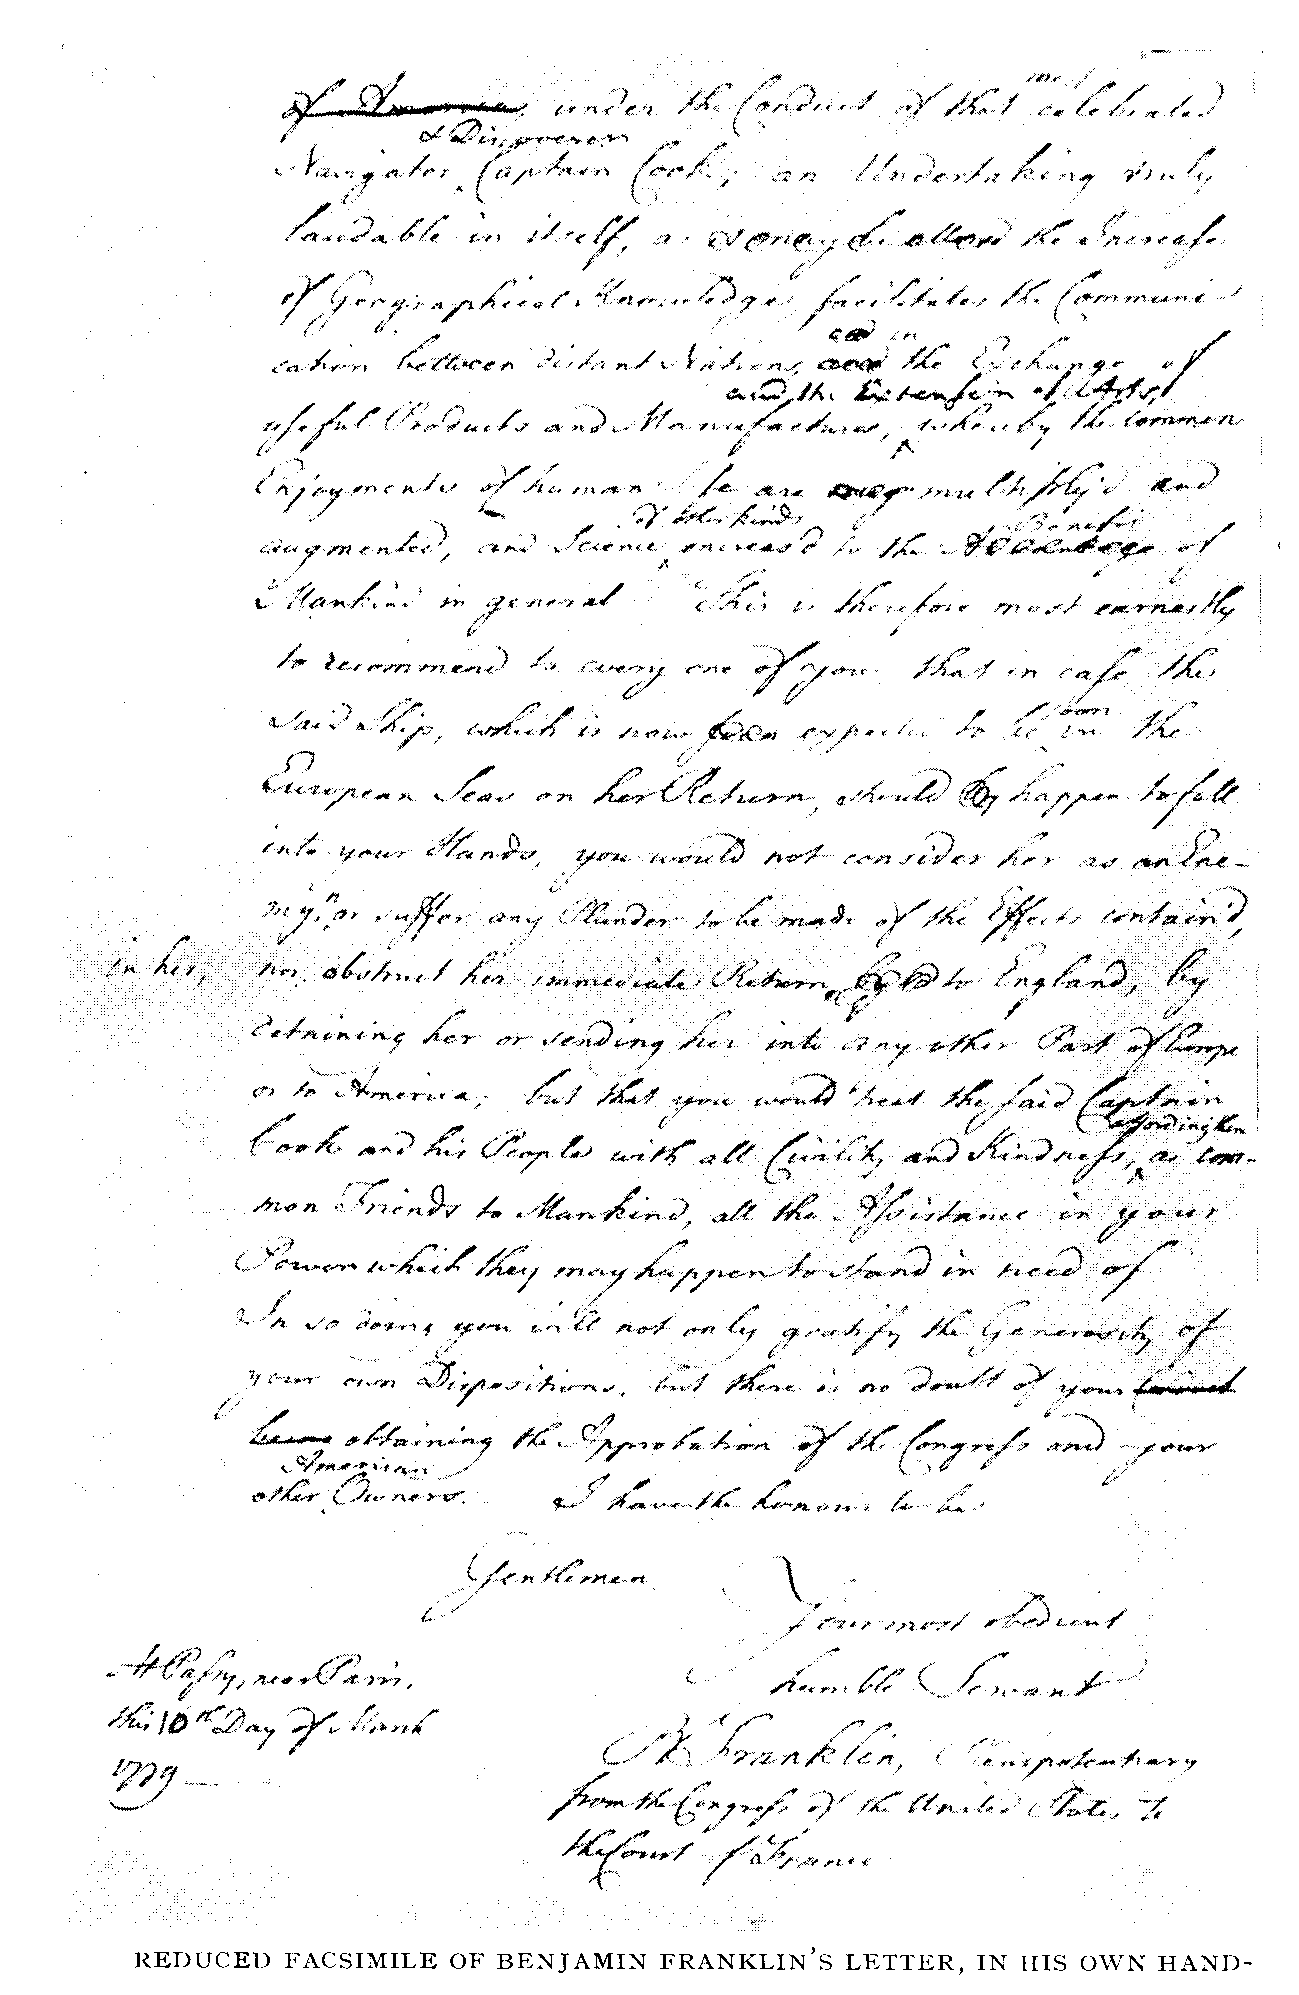 of America, under the Conduct of that most celebrated
& Discoverer
Navigator, Captain Cook; an Undertaking truly
laudable in itself, as the Increase
of Geographical Knowledge, facilitates the Communi-
in
cation between distant Nations, and the Exchange of
and the Extension of Arts,
useful Products and Manufactures, whereby the common
Enjoyments of human Life are multiply'd and
of other kinds Benefit
augmented, and Science increas'd to the Advantage of
Mankind in general. This is therefore most earnestly
to recommend to every one of you that in case the
soon
said Ship, which is now expected to be in the
European Seas on her Return, should happen to fall
into your Hands, you would not consider her as an Ene-
my, nor suffer any Plunder to be made of the Effects contain'd,
in her, nor obstruct her immediate Return to England, by
detaining her or sending her into any other Part of Europe
or to America; but that you would treat the said Captain
affording them
Cook and his People with all Civility and Kindness, as com-
mon Friends to Mankind, all the Assistance in your
Power which they may happen to stand in need of
In so doing you will not only gratify the Generosity of
your own Dispositions, but there is no doubt of your Conduct
being obtaining the Approbation of the Congress and your
American
other Owners. I have the honour to be
Gentlemen
Your most obedient
humble Servant
At Passy, near Paris,
this 10th Day of March
1779
B Franklin, Plenipotentiary
from the Congress of the United States to
the Court of France
REDUCED FACSIMILE OF BENJAMIN FRANKLIN'S LETTER, IN HIS OWN HAND-